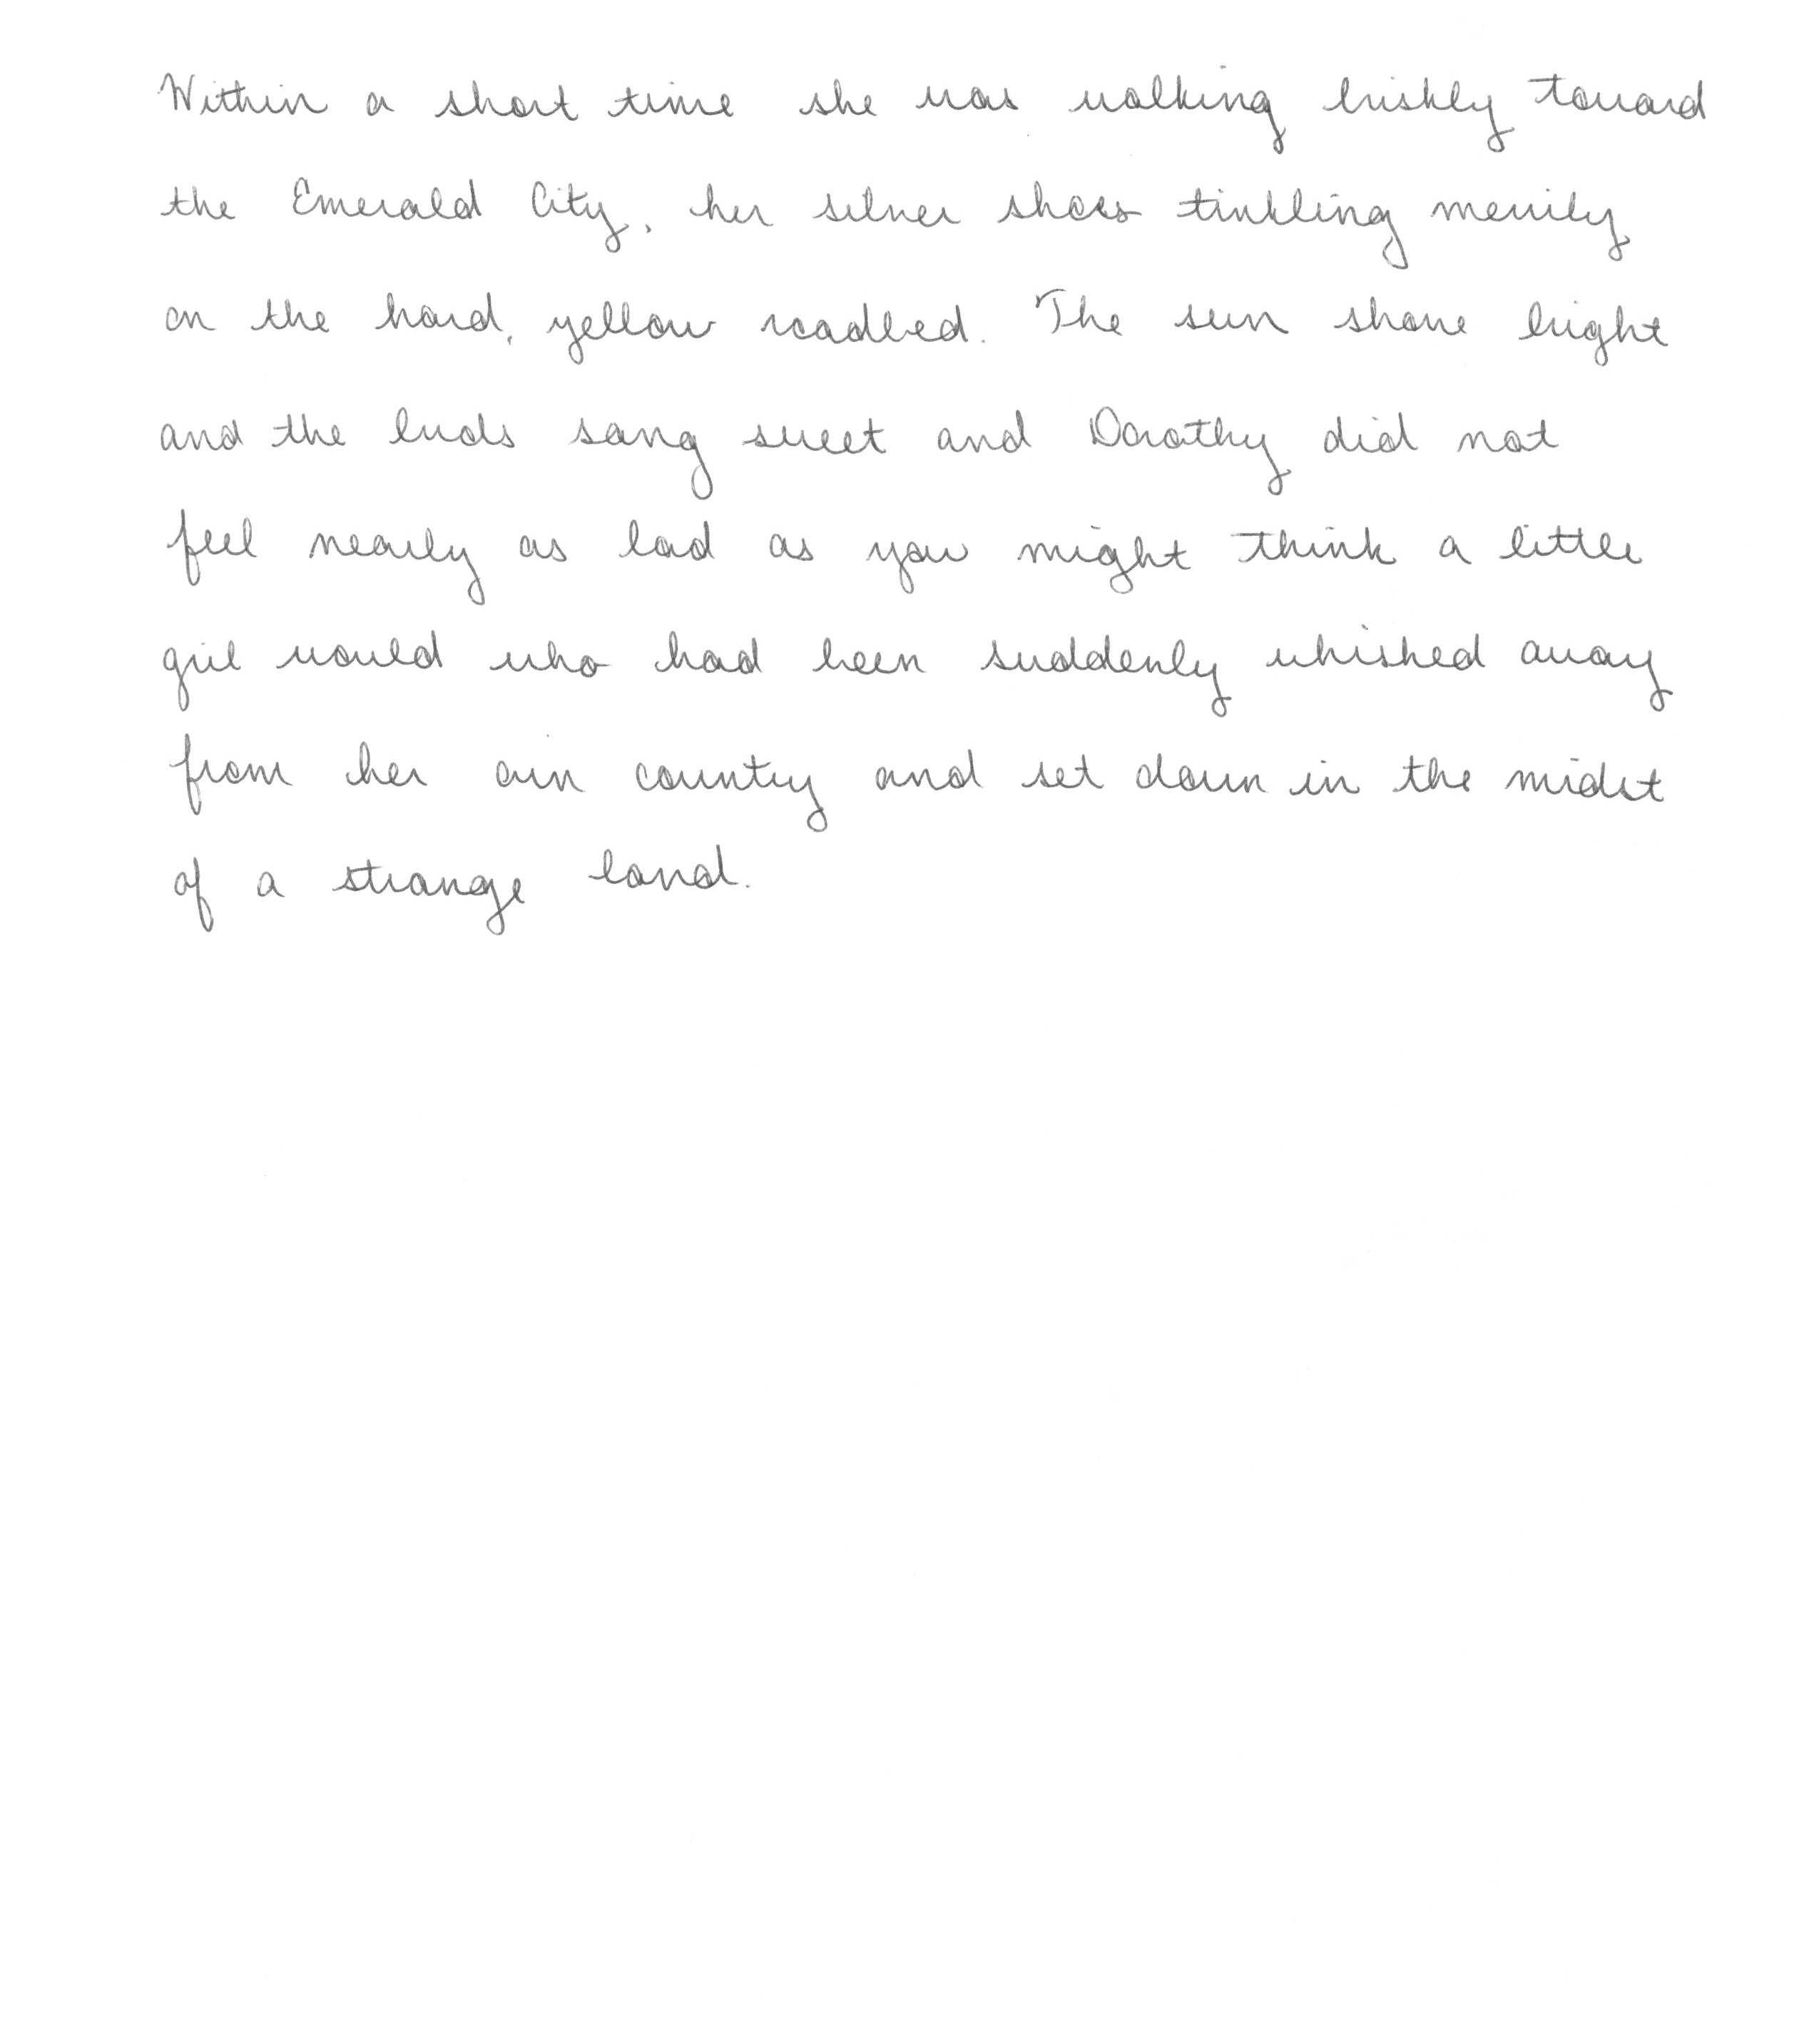 Within a short time she was walking briskly toward
the Emerald City, her silver shoes tinkling merrily
on the hard, yellow roadbed. The sun shone bright
and the birds sang sweet and Dorothy did not
feel nearly as bad as you might think a little
girl would who had been suddenly whished away
from her own country and set down in the midst
of a strange land.